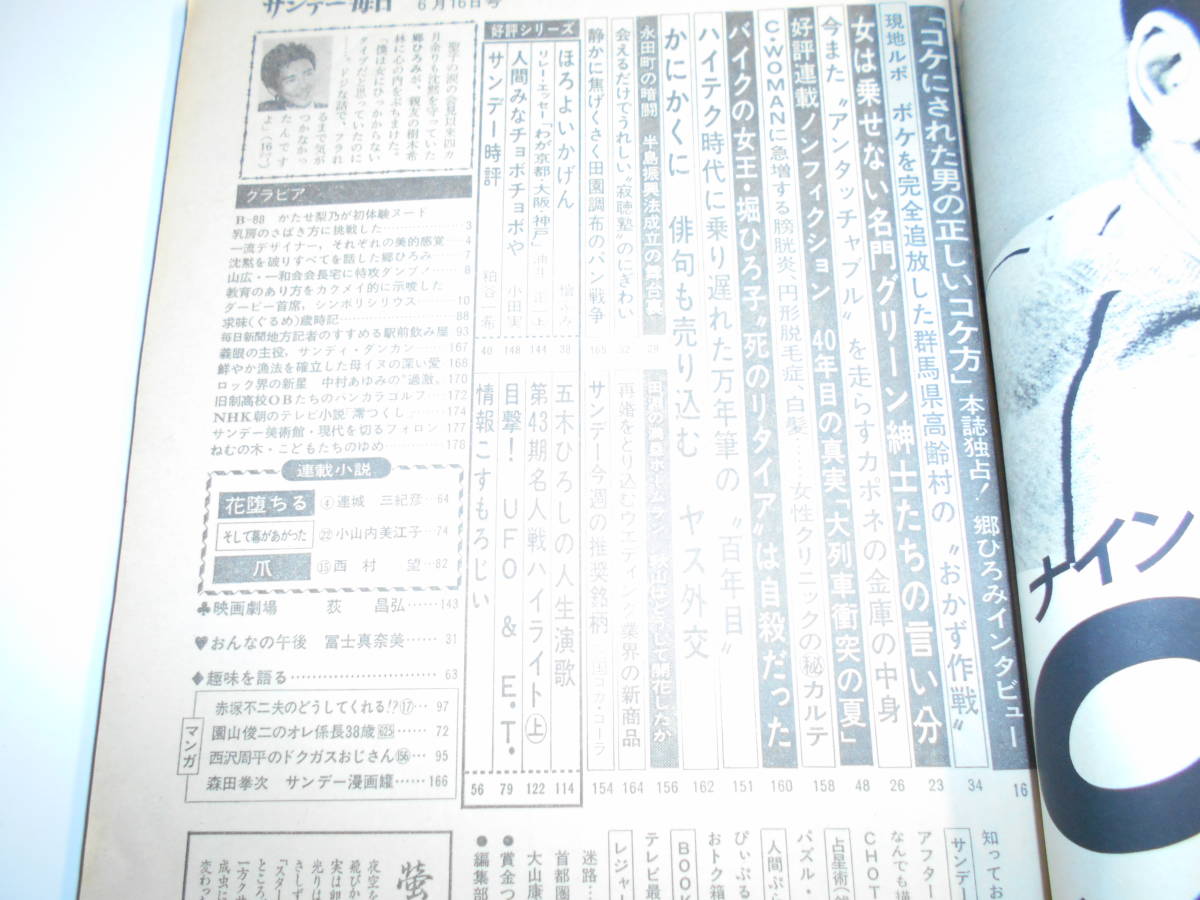 サンデー毎日 6月16日号
「コケにされた男の正しいコケ方」本誌独占! 郷ひろみインタビュー 16
現地ルポ ボケを完全追放した群馬県高齢村の〝おかず作戦〟 34
女は乗せない名門グリーン紳士たちの言い分 23
今また〝アンタッチャブル〟を走らすカポネの金庫の中身 26
好評連載ノンフィクション 40年目の真実「大列車衝突の夏」 48
C・WOMANに急増する膀胱炎、円形脱毛症、白髪……女性クリニックの㊙カルテ 158
バイクの女王・堀ひろ子〝死のリタイア〟は自殺だった 160
ハイテク時代に乗り遅れた万年筆の〝百年目〟 151
かにかくに 俳句も売り込む ヤス外交 162
永田町の暗闘 半島振興法成立の舞台裏 29
156
会えるだけでうれしい〝寂聴塾〟のにぎわい 32
再婚をとり込むウエディング業界の新商品 164
静かに焦げくさく田園調布のパン戦争 165
サンデー今週の推奨銘柄 154
好評シリーズ
ほろよいかげん 38
五木ひろしの人生演歌 114
リレー・エッセー「わが京都・大阪・神戸」 144
第43期名人戦ハイライト㊤ 122
人間みなチョボチョボや 小田実 148
目撃! UFO & E.T. 79
サンデー時評 40
情報こすもろじい 56
聖子の涙の会見以来四カ
月余りも沈黙を守っていた
郷ひろみが、親友の樹木希
林に心の内をぶちまけた。
「僕は女にひっかからない
タイプだと思っていたのに
…。ドジな話で、フラれ
るまで気が
つかなかっ
たんです
よ」(16㌻)
グラビア
B-88 かたせ梨乃が初体験ヌード
乳房のさばき方に挑戦した……3
一流デザイナー，それぞれの美的感覚…4
沈黙を破りすべてを話した郷ひろみ…7
山広・一和会会長宅に特攻ダンプ／…8
教育のあり方をカクメイ的に示唆した
ダービー首席，シンボリシリウス……10
求味(ぐるめ)歳時記……88
毎日新聞地方記者のすすめる駅前飲み屋 93
義眼の主役，サンディ・ダンカン……167
鮮やか漁法を確立した母イヌの深い愛 168
ロック界の新星 中村あゆみの〝過激〟170
旧制高校OBたちのバンカラゴルフ…172
NHK朝のテレビ小説「澪つくし」…174
サンデー美術館・現代を切るフォロン 177
ねむの木・こどもたちのゆめ……178
連載小説
花堕ちる ④連城 三紀彦…64
そして幕があがった ㉒小山内美江子…74
爪 ⑮西村 望…82
♣映画劇場 荻 昌弘……143
♥おんなの午後 冨士真奈美……31
◆趣味を語る……63
マンガ
赤塚不二夫のどうしてくれる!?⑰… 97
園山俊二のオレ係長38歳625…… 72
西沢周平のドクガスおじさん156… 95
森田拳次 サンデー漫画館……166
知ってお
サンデー
アフター
なんでも
CHOT
占星術
パズル・
人間ぶら
ぴぃぷる
おトク箱
BOOK
テレビ最
レジャー
迷路…
首都圏
大山康
●賞金つ
●編集部
螢
夜空を
飛びか
実は卵
光りは
さしず
「スター
ところ
一方ク
成虫に
変わっ
ナイン